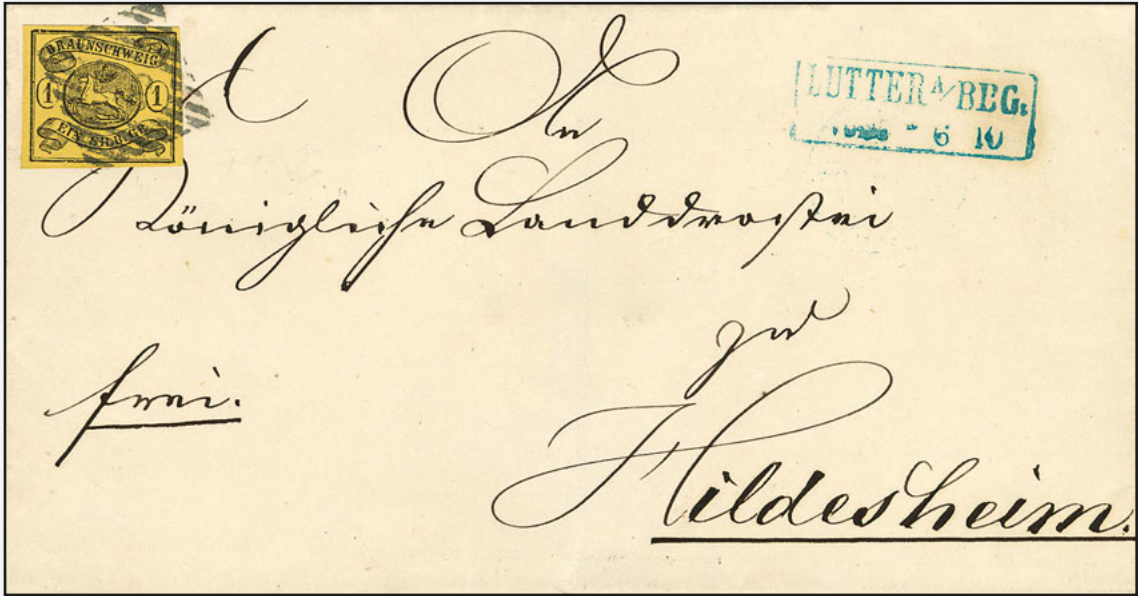 BRAUNSCHWEIG
1 1
EIN SILB.GR.
An
LUTTER A/BBG.
6 10
Königliche Landdrostei
zu
frei.
Hildesheim.